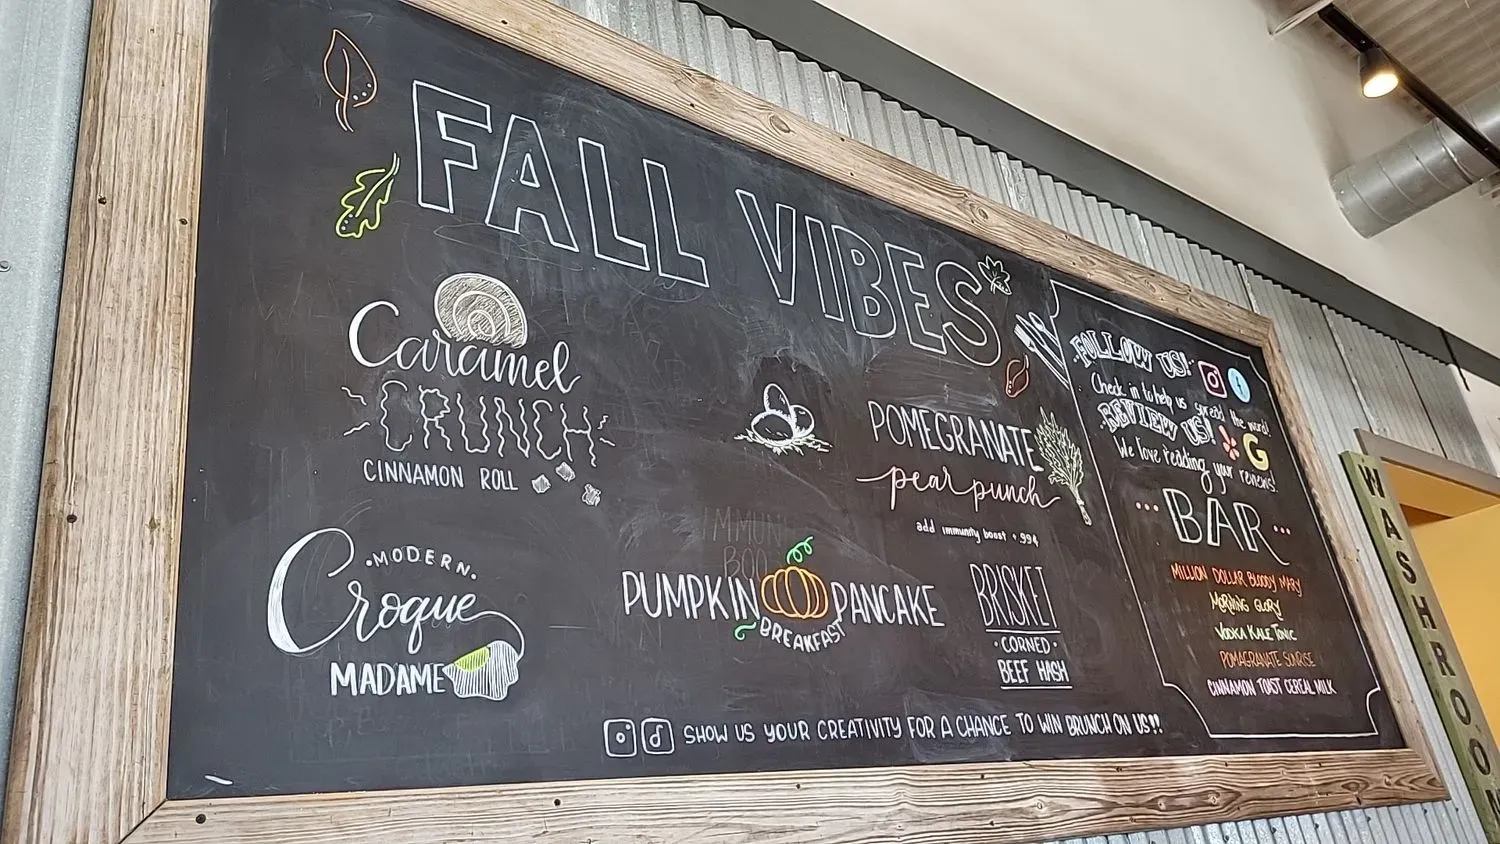 FALL VIBES
Caramel
CRUNCH
CINNAMON ROLL
MODERN
Croque
MADAME
IMMUN
BOO
PUMPKIN PANCAKE
BREAKFAST
POMEGRANATE
pear punch
add immunity boost + .99¢
BRISKET
CORNED
BEEF HASH
SHOW US YOUR CREATIVITY FOR A CHANCE TO WIN BRUNCH ON US!!
FOLLOW US!
Check in to help us spread the word!
REVIEW US!
G
We love reading your reviews!
BAR
MILLION DOLLAR BLOODY MARY
MORNING GLORY
VODKA KALE TONIC
POMAGRANATE SUNRISE
CINNAMON TOAST CEREAL MILK
WASHROOM